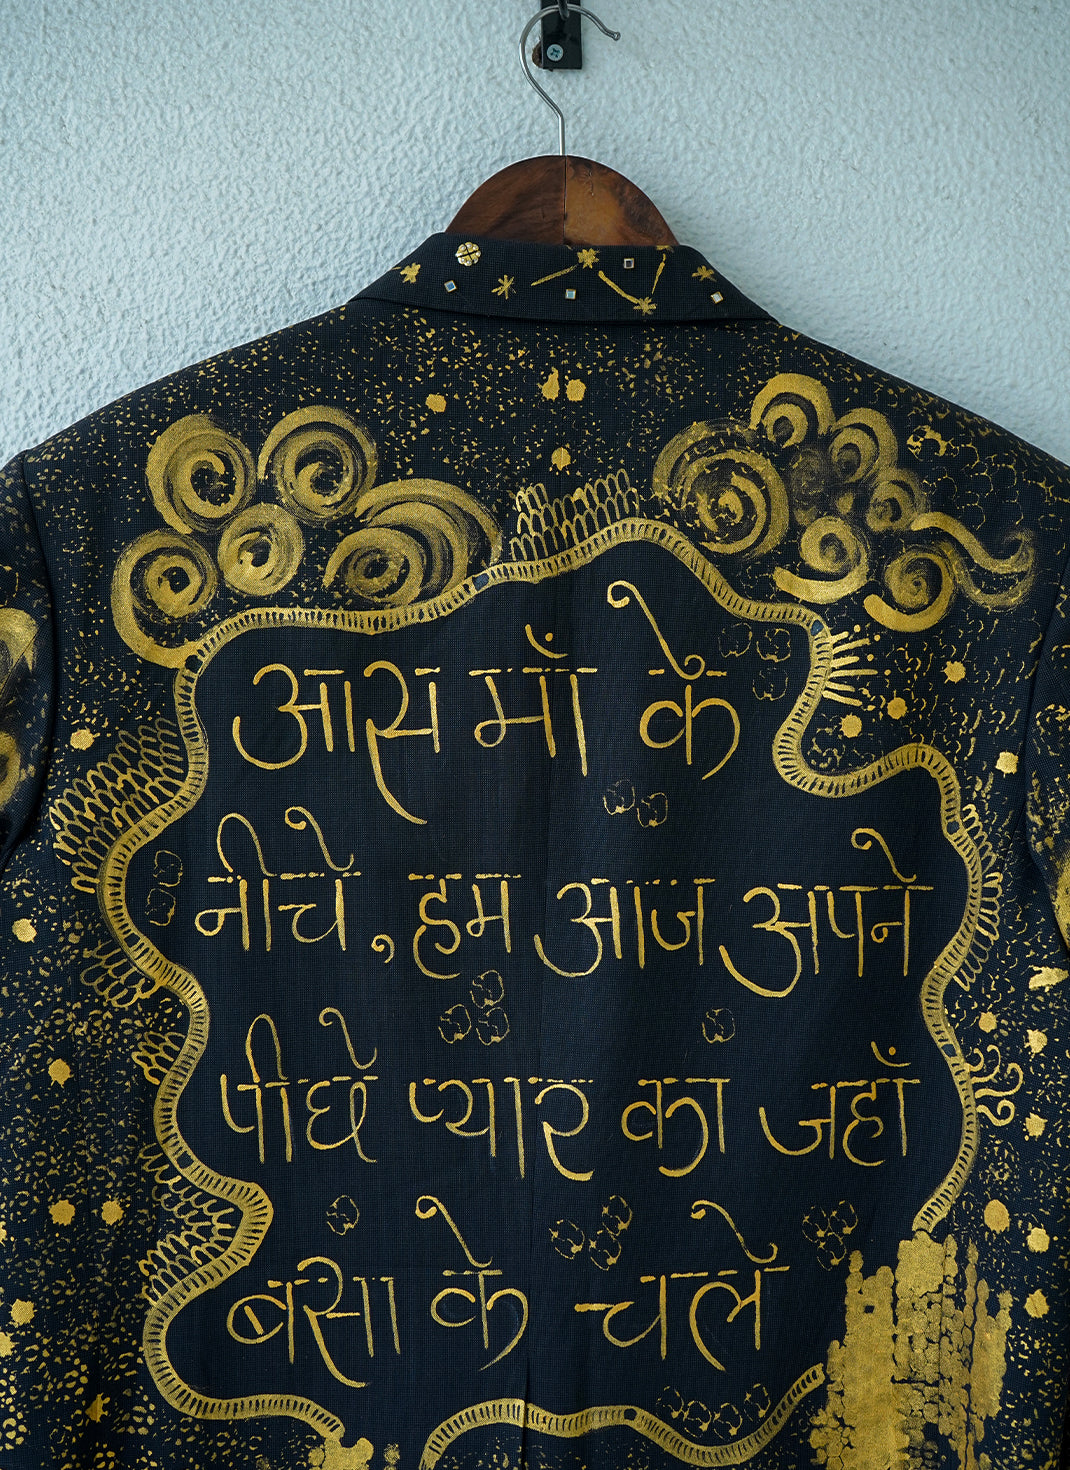 आस माँ के
नीचे, हम आज अपने
पीछे प्यार का जहाँ
बसा के चले